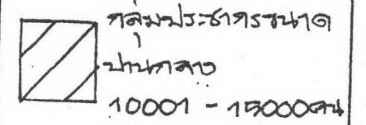 กลุ่มประชากรขนาด
ปานกลาง
10001 - 15000คน